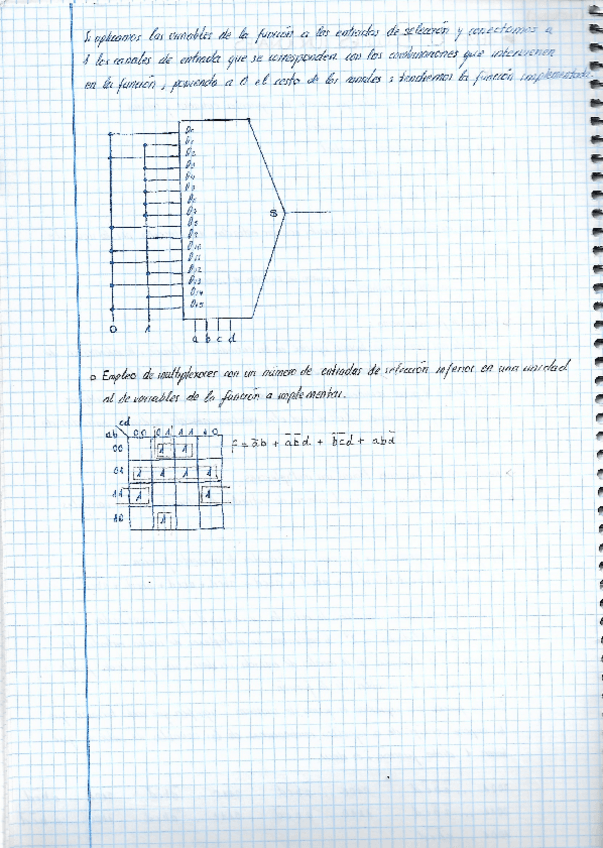 Si aplicamos las variables de la función a las entradas de selección y conectamos a
1 los canales de entrada que se corresponden con las combinaciones que intervienen
en la función, poniendo a 0 el resto de los canales, tendremos la función implementada.
D0
D1
D2
D3
D4
D5
D6
D7
D8
D9
D10
D11
D12
D13
D14
D15
S
0 1
a b c d
o Empleo de multiplexores con un número de entradas de selección inferior en una unidad
al de variables de la función a implementar.
cd
ab 00 01 11 10
00 1 1
01 1 1 1 1
11 1 1
10 1
F = a̅b + a̅b̅d + b̅c̅d + abd̅